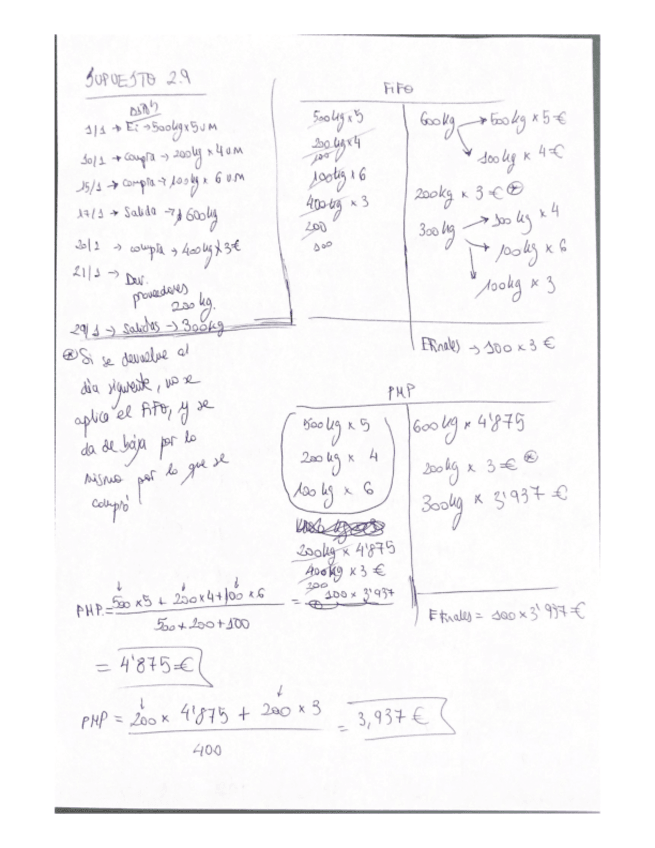 SUPUESTO 2.9
DATOS
1/1 → Ei → 500kg x 5 um
10/1 → Compra → 200kg x 4 um
15/1 → Compra → 100kg x 6 um
17/1 → Salida → 600kg
20/2 → compra → 400kg x 3€
21/1 → Dev. proveedores
200 kg.
29/1 → Salidas → 300kg
* Si se devuelve al
día siguiente, no se
aplica el FIFO, y se
da de baja por lo
mismo por lo que se
compró
FIFO
500kg x 5
200kg x 4
100
100kg x 6
400kg x 3
200
100
600kg → 500kg x 5€
→ 100kg x 4€
200kg x 3€ *
300kg → 100kg x 4
→ 100kg x 6
→ 100kg x 3
EFinales → 100 x 3€
PMP
500kg x 5
200kg x 4
100kg x 6
200kg x 4'875
400kg x 3€
200
100 x 3'937
600kg x 4'875
200kg x 3€ *
300kg x 3'937€
EFinales = 100 x 3'937€
PMP = 500 x 5 + 200 x 4 + 100 x 6 =
500 + 200 + 100
= 4'875€
PMP = 200 x 4'875 + 200 x 3 = 3,937€
400